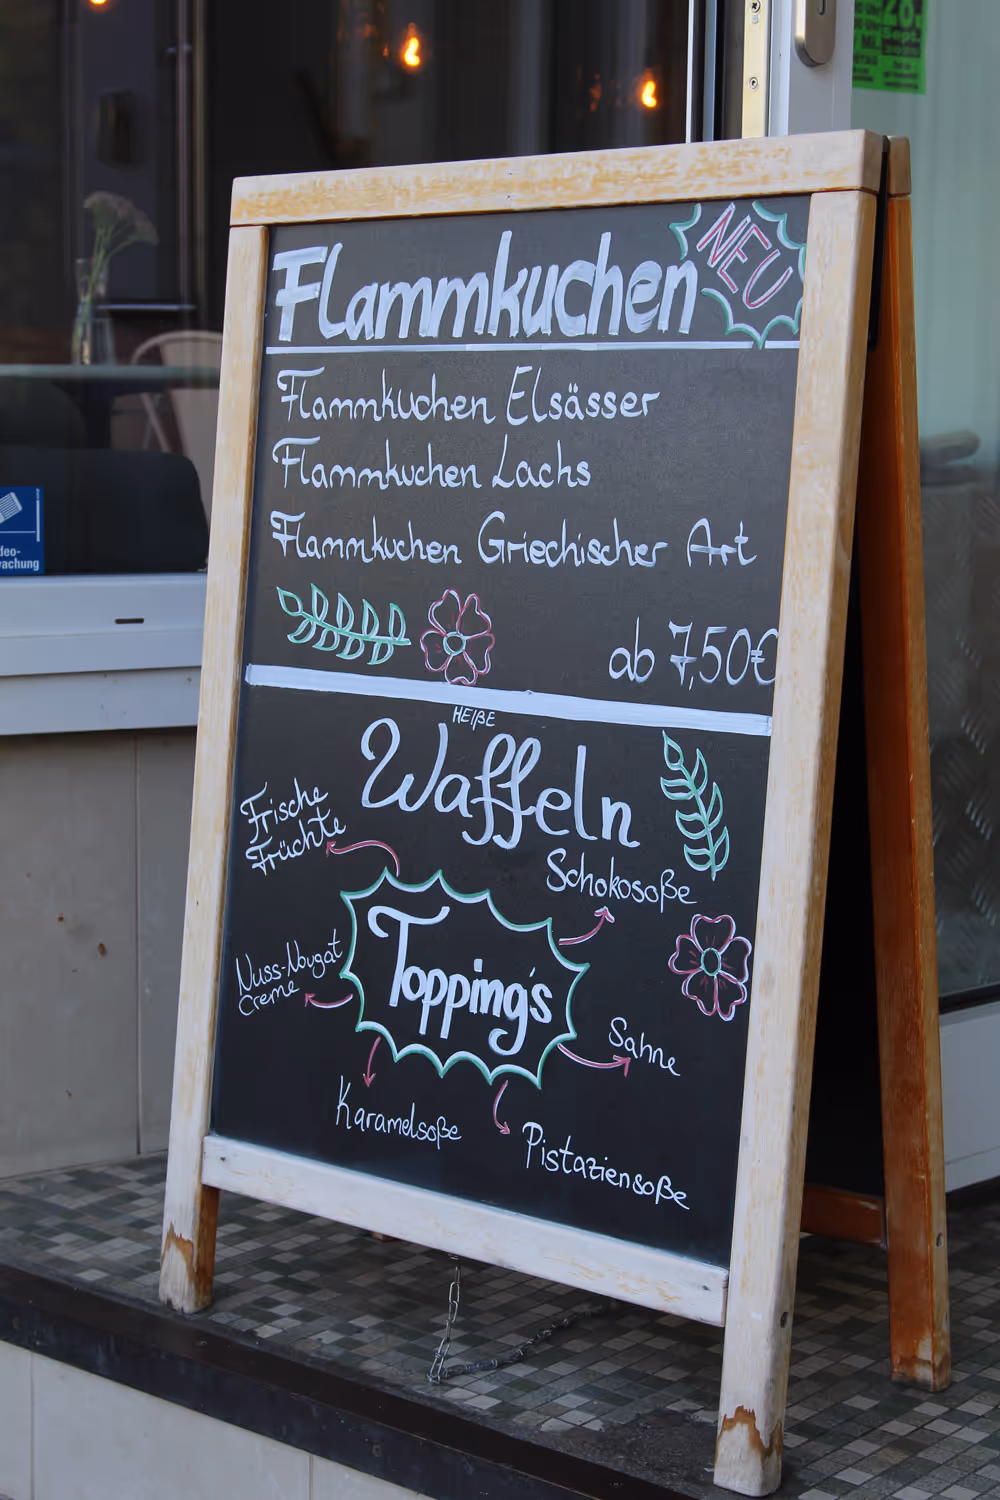 Flammkuchen
NEU
Flammkuchen Elsässer
Flammkuchen Lachs
Flammkuchen Griechischer Art
ab 7,50€
HEIßE
Waffeln
Frische
Früchte
Schokosoße
Topping's
Nuss-Nougat
Creme
Sahne
Karamelsoße
Pistaziensoße
28.
Sept.
deo-
wachung